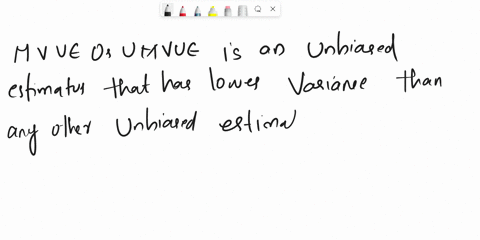 MVUE Or UMVUE is an Unbiased
estimator that has lower Variance than
any other Unbiased estima